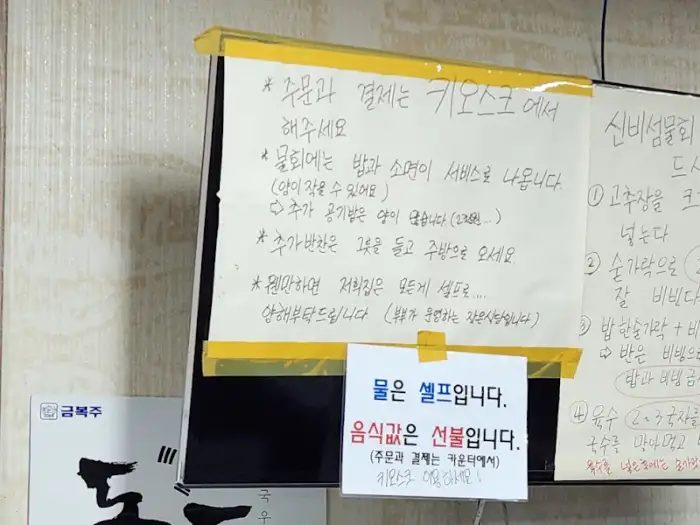 * 주문과 결제는 키오스크에서
해주세요
* 물회에는 밥과 소면이 서비스로 나옵니다.
(양이 작을 수 있어요)
⇨ 추가 공기밥은 양이 많습니다
* 추가반찬은 그릇을 들고 주방으로 오세요
* 웬만하면 저희집은 모든게 셀프로...
양해부탁드립니다 (부부가 운영하는 작은식당입니다)
물은 셀프입니다.
음식값은 선불입니다.
(주문과 결제는 카운터에서)
키오스크 이용하세요!
신비섬물회
드시
① 고추장을 크
넣는다
② 숟가락으로
잘 비빈다
③ 밥 한숟가락 + 비
⇨ 밥은 비빔으로
밥과 비빔
④ 육수 2~3국자를
국수를 말아먹고
육수를
금복주
국
우